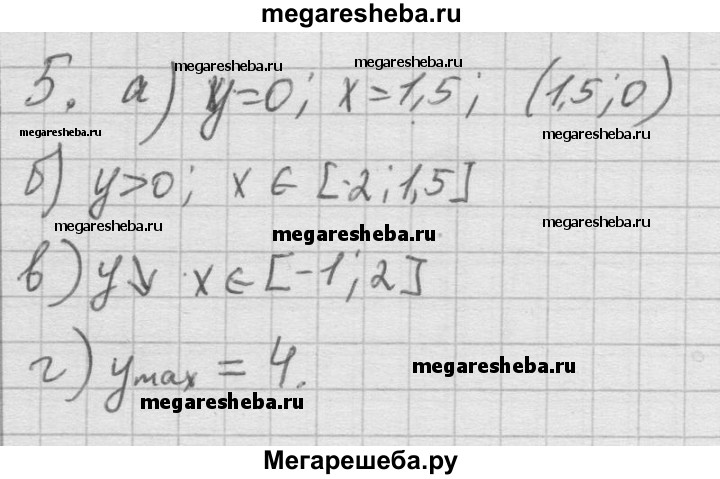 megaresheba.ru
5. а) y=0; x=1,5; (1,5;0)
megaresheba.ru megaresheba.ru
megaresheba.ru megaresheba.ru
б) y>0; x ∈ [-2;1,5]
megaresheba.ru megaresheba.ru
megaresheba.ru
в) y↘ x ∈ [-1;2]
г) ymax = 4.
megaresheba.ru
megaresheba.ru
Мегарешеба.ру